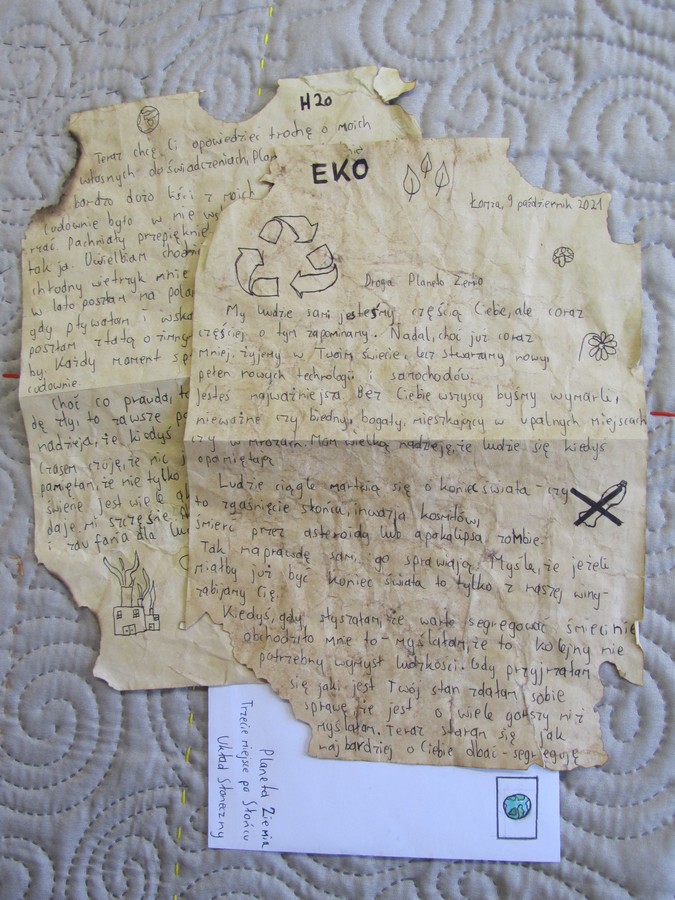 EKO
Łomża, 9 październik 2021
Droga Planeto Ziemio
My ludzie sami jesteśmy częścią Ciebie, ale coraz
częściej o tym zapominamy. Nadal, choć już coraz
mniej, żyjemy w Twoim świecie, lecz stwarzamy nowy,
pełen nowych technologii i samochodów.
Jesteś najważniejsza. Bez Ciebie wszyscy byśmy wymarli,
nieważne czy biedny, bogaty, mieszkający w upalnych miejscach
czy w mrozach. Mam wielką nadzieję, że ludzie się kiedyś
opamiętają.
Ludzie ciągle martwią się o koniec świata - czy
to zgaśnięcie słońca, inwazja kosmitów,
śmierć przez asteroidy lub apokalipsa zombie.
Tak naprawdę sami go sprawiają. Myślę, że jeżeli
miałby już być koniec świata to tylko z naszej winy-
zabijamy Cię.
Kiedyś, gdy słyszałam, że warto segregować śmieci nie
obchodziło mnie to - myślałam, że to kolejny nie
potrzebny wymysł ludzkości. Gdy przyjrzałam
się jaki jest Twój stan zdałam sobie
sprawę, że jest o wiele gorszy niż
myślałam. Teraz staram się jak
najbardziej o Ciebie dbać - segreguję
H2O
Teraz chcę Ci opowiedzieć trochę o moich
własnych doświadczeniach, Plan
bardzo dużo łsi z moich
Cudownie było w nie w
Pachniały przepięknie
tak ja. Uwielbiam chodzi
chłodny wetrzyk mnie
w lato poszłam na polan
gdy pływałam i wska
poszłam zlałą o zimny
by. Każdy moment sp
cudownie.
Choć co prawda, to
dę zły, to zawsze po
nadzieja, że kiedyś
Czasem czuję, że nic
pamiętam, że nie tylko
świene jest wiele al
daje mi szczęście
i zaufania dla lud
Planeta Ziemia
Trzecie miejsce po Słońcu
Układ Słoneczny